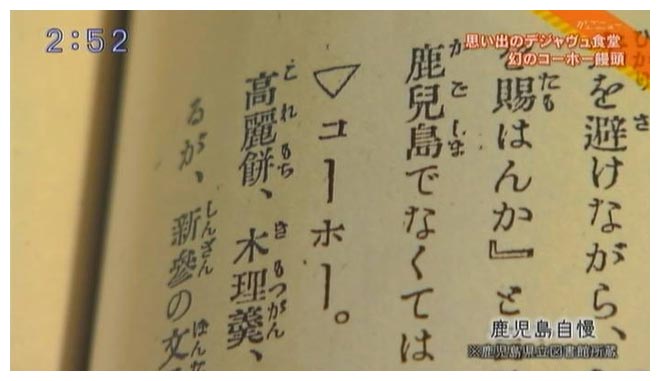 2:52
思い出のデジャヴュ食堂
幻のコーホー饅頭
を避けながら、
賜はんか』と
鹿兒島でなくては
▽コーホー。
高麗餅、木理羹、
るが、新參の文
鹿児島自慢
※鹿児島県立図書館所蔵